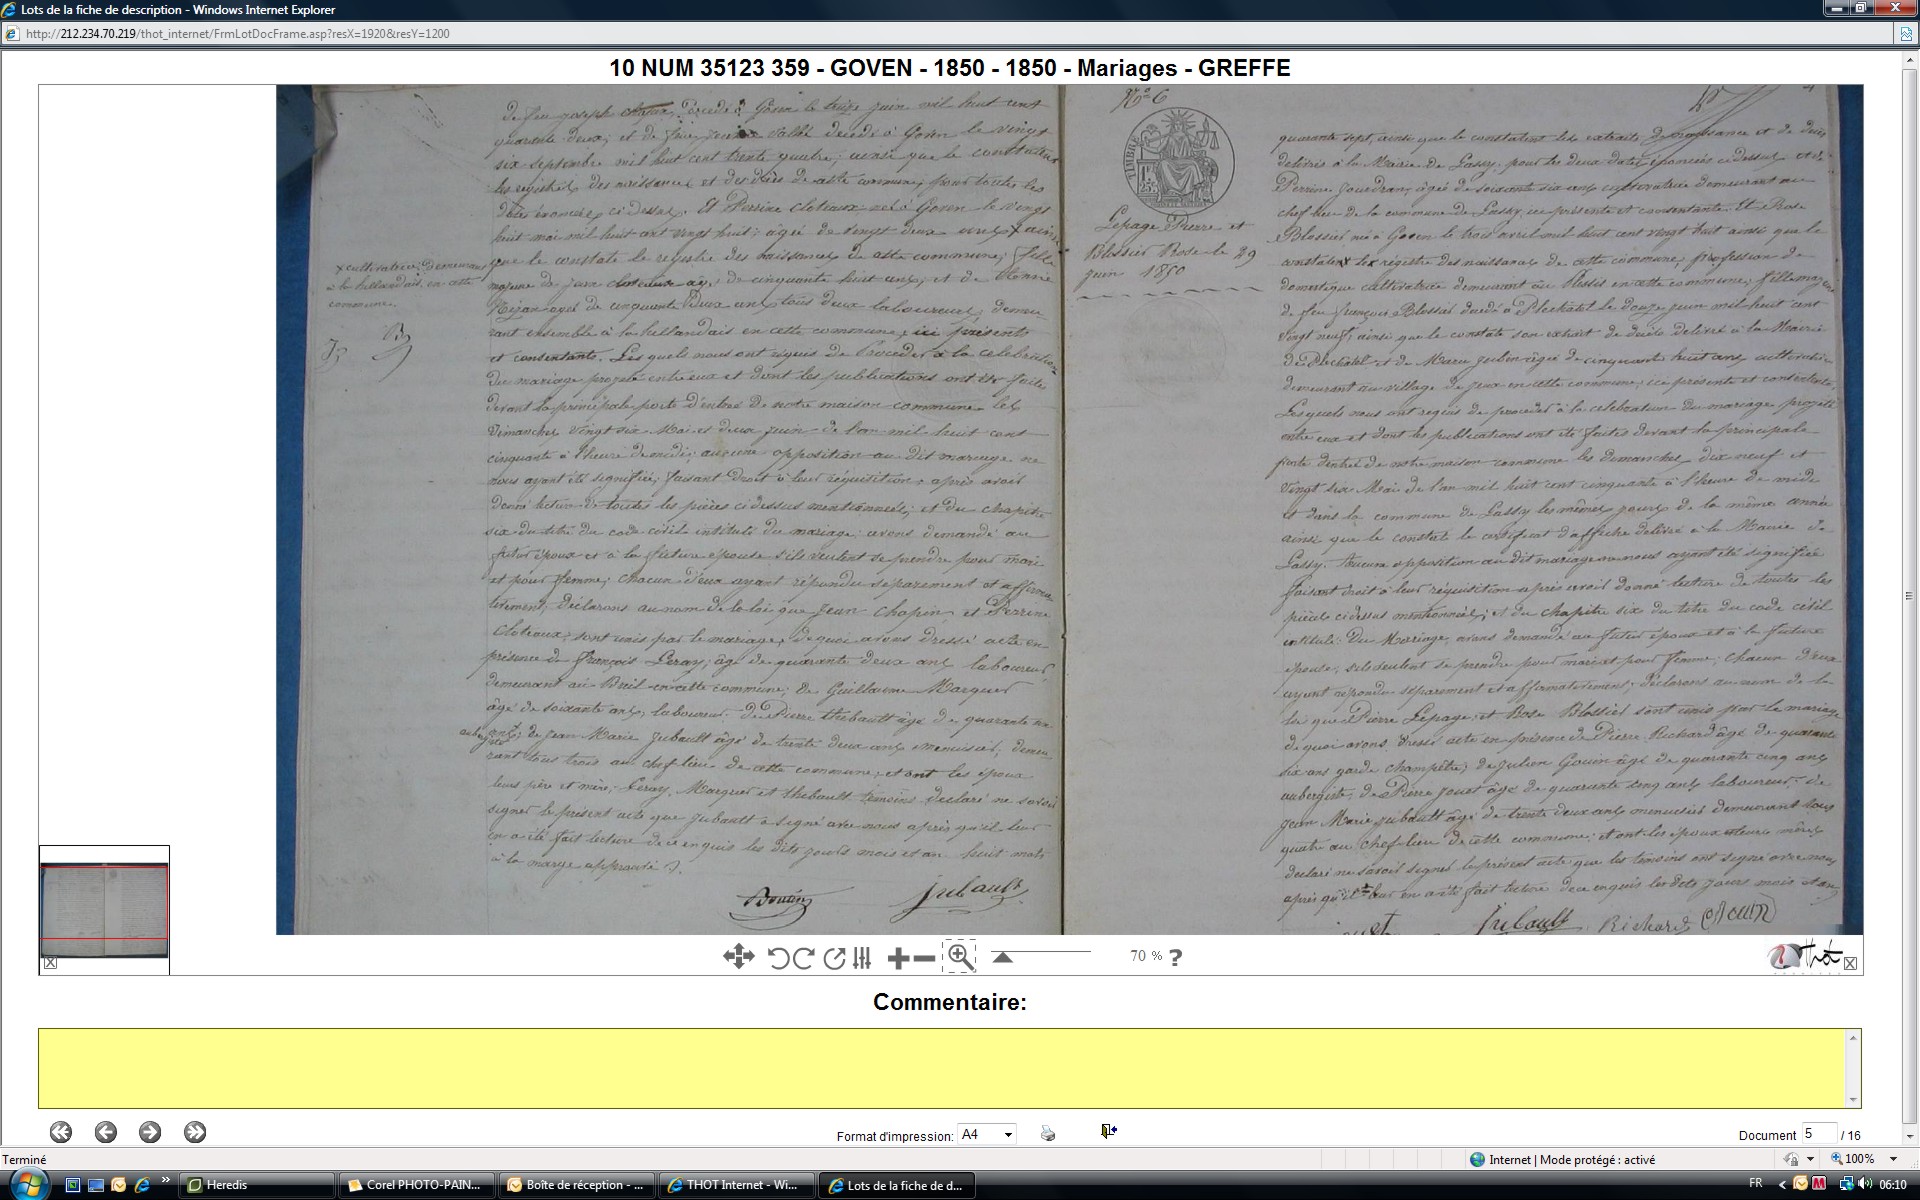 Lots de la fiche de description - Windows Internet Explorer
http://212.234.70.219/thot_internet/FrmLotDocFrame.asp?resX=1920&resY=1200
10 NUM 35123 359 - GOVEN - 1850 - 1850 - Mariages - GREFFE
de feu joseph décédé à Goven le treize juin mil huit cent
quarante deux; et de feue vallée décédée à Goven le vingt
six septembre mil huit cent trente quatre; ainsi que le constatent
les registres des naissances et des décès de cette commune, pour toutes les
dates énoncées ci dessus. Et Perrine Cloteaux née à Goven le vingt
huit mai mil huit cent vingt huit; âgée de vingt deux ans X ainsi
que le constate le registre des naissances de cette commune; fille
majeure de jean cloteaux âgé de cinquante huit ans, et de
âgée de cinquante deux ans tous deux laboureurs, demeu
rant ensemble à la hellandais en cette commune, ici présents
et consentants. Lesquels nous ont requis de Procéder à la celebration
du mariage projeté entre eux et dont les publications ont été faites
devant la principale porte d'entrée de notre maison commune les
Dimanches vingt six Mai et deux juin de l'an mil huit cent
cinquante à l'heure de midi; aucune opposition au dit mariage ne
nous ayant été signifiée, faisant droit à leur réquisition, après avoir
donné lecture de toutes les pièces ci dessus mentionnées, et du chapitre
six du titre du code civil intitulé du mariage; avons demandé au
futur époux et à la future épouse s'ils veulent se prendre pour mari
et pour femme; chacun d'eux ayant répondu séparement et affirma
tivement, déclarons au nom de la loi que Jean Chapin et Perrine
Cloteaux, sont unis par le mariage, de quoi avons dressé acte en
présence de françois Leray, âgé de quarante deux ans laboureur
demeurant au Breil en cette commune; de Guillaume Marquer
âgé de soixante ans, laboureur, de Pierre thébault âgé de quarante
ans; de jean Marie Jubault âgé de trente deux ans menuisier, demeu
rant tous trois au chef lieu de cette commune, et ont les époux
leurs père et mère, Leray, Marquer et thébault témoins déclaré ne savoir
signer le présent acte que Jubault a signé avec nous après qu'il leur
en a été fait lecture de ce enquis les dits jours mois et an huit mots
à la marge approuvé
x cultivatrice, demeurant
à la hellandais en cette
commune
aubergiste
Jubault
No 6
TIMBRE
Lepage Pierre et
Blossier Rose le 29
juin 1850
quarante sept, ainsi que le constatent les extraits de naissance et de décès
délivrés à la Mairie de Lassy, pour les deux dates énoncées ci dessus, et de
Perrine âgée de soixante six ans cultivatrice demeurant au
chef lieu de la commune de Lassy, ici présente et consentante. Et Rose
Blossier née à Goven le trois avril mil huit cent vingt huit ainsi que le
constate le registre des naissances de cette commune, profession de
domestique cultivatrice demeurant au Plessis en cette commune, fille majeure
de feu françois Blossier décédé à Plechatel le douze juin mil huit cent
vingt neuf, ainsi que le constate son extrait de décès délivré à la Mairie
de Plechatel et de Marie âgée de cinquante huit ans cultivatrice
demeurant au village de en cette commune, ici présente et consentante
Lesquels nous ont requis de proceder à la celebration du mariage projeté
entre eux et dont les publications ont été faites devant la principale
porte d'entrée de notre maison commune les dimanches dix neuf et
vingt six Mai de l'an mil huit cent cinquante à l'heure de midi
et dans la commune de Lassy les mêmes jours de la même année
ainsi que le constate le certificat d'affiche délivré à la Mairie de
Lassy. Aucune opposition au dit mariage ne nous ayant été signifiée
faisant droit à leur réquisition après avoir donné lecture de toutes les
pièces ci dessus mentionnées, et du chapitre six du titre du code civil
intitulé: Du Mariage, avons demandé au futur époux et à la future
épouse, s'ils veulent se prendre pour mari et pour femme; chacun d'eux
ayant répondu séparement et affirmativement; déclarons au nom de la
loi que Pierre Lepage, et Rose Blossier sont unis par le mariage
de quoi avons dressé acte en présence de Pierre Richard âgé de quarante
six ans garde champêtre; de Julien Gouin âgé de quarante cinq ans
aubergiste, de Pierre jouet âgé de quarante cinq ans laboureur, de
Jean Marie jubault âgé de trente deux ans menuisier demeurant tous
quatre au chef lieu de cette commune: et ont les époux et leurs mères
déclaré ne savoir signer le présent acte que les témoins ont signé avec nous
après qu'il leur en a été fait lecture de ce enquis les dits jours mois et an
Jubault Richard Gouin
70 % ?
Thot
Commentaire:
Format d'impression: A4
Document 5 / 16
Terminé
Internet | Mode protégé : activé
100%
Heredis
Corel PHOTO-PAIN...
Boîte de réception - ...
THOT Internet - Wi...
Lots de la fiche de d...
FR
06:10